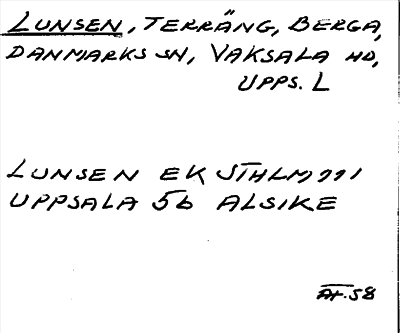 LUNSEN, TERRÄNG, BERGA,
DANMARKS SN, VAKSALA HD,
UPPS. L
LUNSEN EK STHLM 111
UPPSALA 5b ALSIKE
58